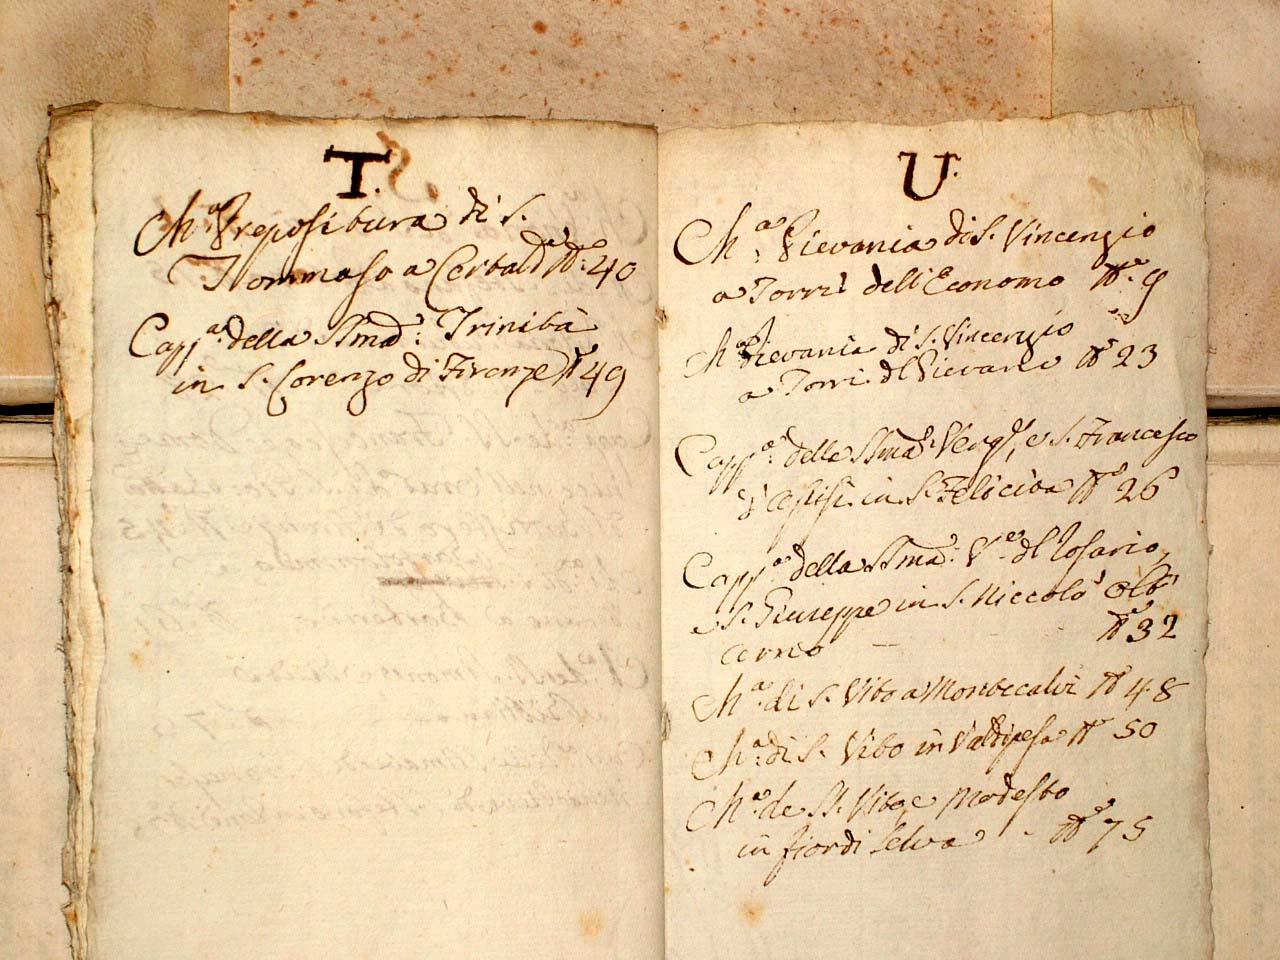 T.
Ch.ª Prepositura di S.
Tommaso a Certald.º N.º 40
Capp.ª della SSma: Trinità
in S. Lorenzo di Firenze N.º 49
U.
Ch.ª Pievania di S. Vincenzio
a Torri dell'Economo N.º 9
Ch.ª Pievania di S. Vincenzio
a Torri del Pievano N.º 23
Capp.ª della SSma: Verg.e, e S. Francesco
d'Asisi in S. Felicita N.º 26
Capp.ª della SSma: V.e del Rosario,
e S. Giuseppe in S. Niccolò Olt
rarno N.º 32
Ch.ª di S. Vito a Montecalvi N.º 48
Ch.ª di S. Vito in Valdipesa N.º 50
Ch.ª de SS. Vito, e Modesto
in fior di selva - N.º 75